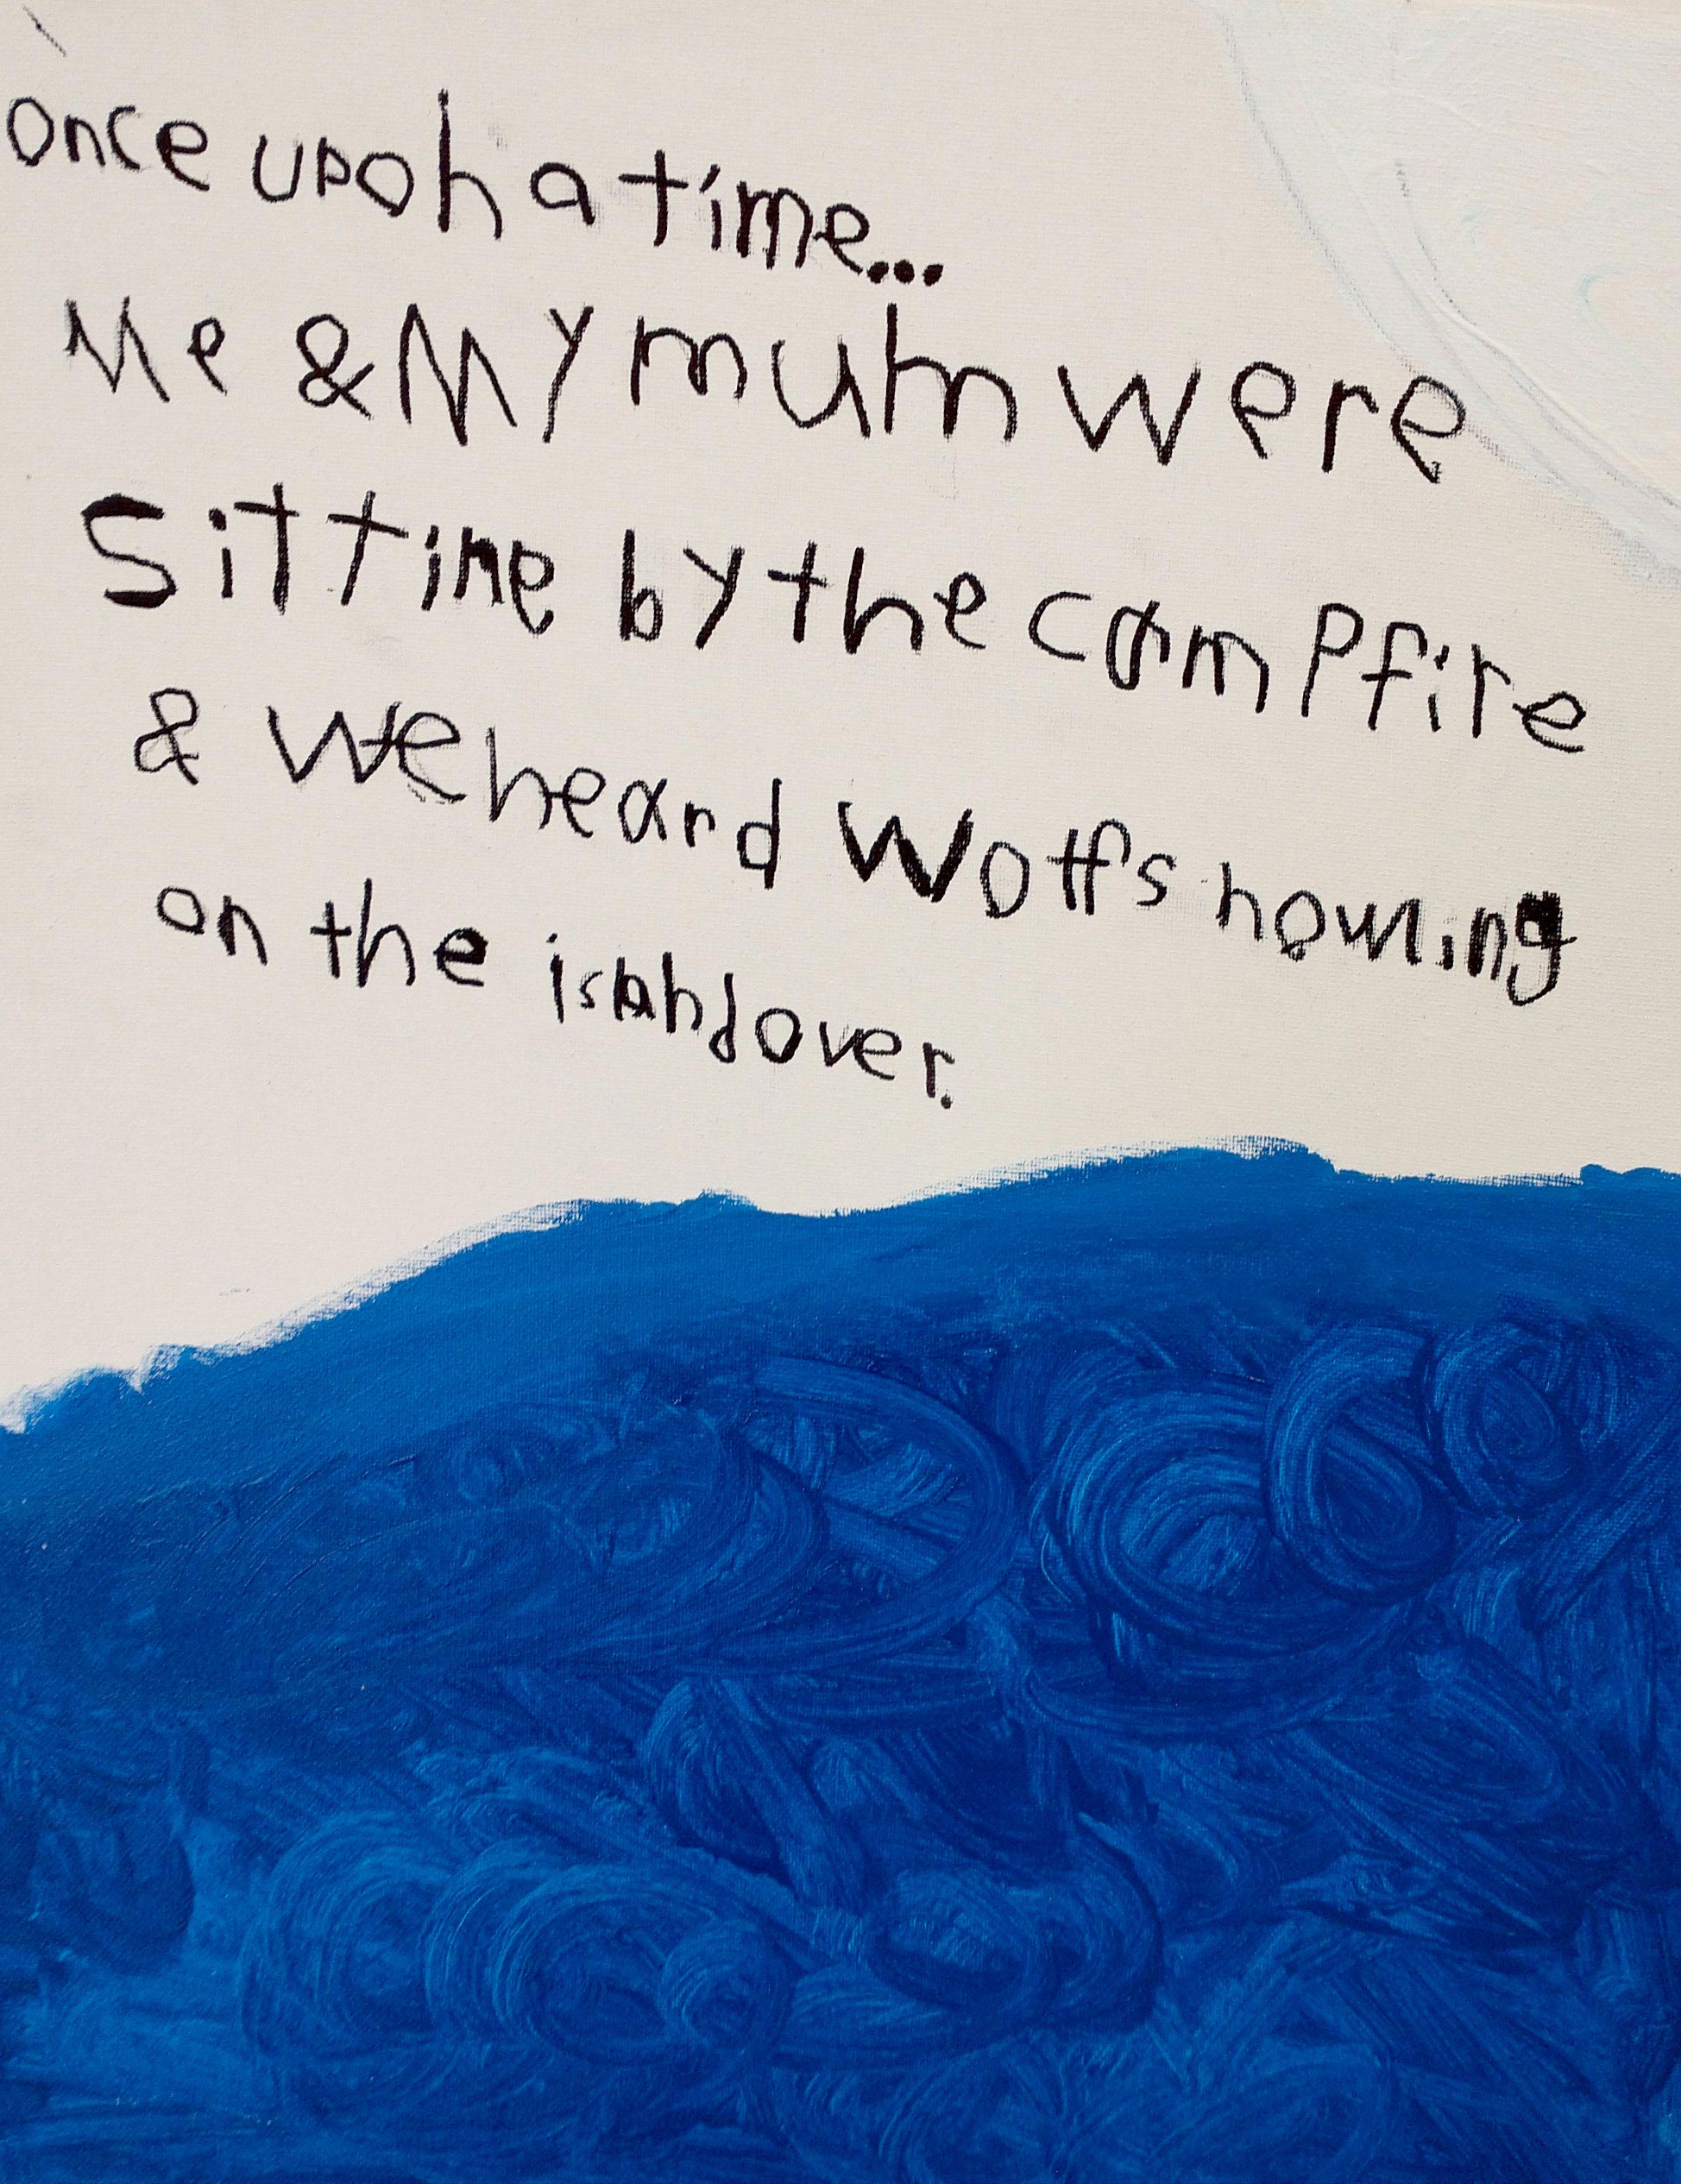 Once upon a time...
Me & My mum were
sitting by the campfire
& We heard Wolfs howling
on the island over.